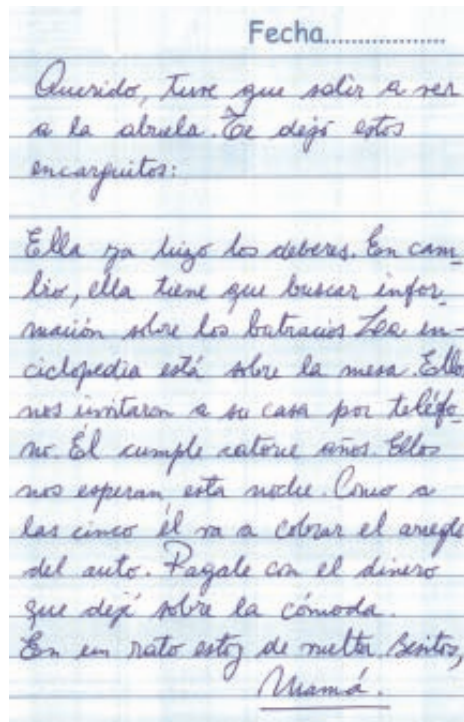 Fecha..................
Querido, tuve que salir a ver
a la abuela. Te dejo estos
encarguitos:
Ella ya hizo los deberes. En cam_
bio, ella tiene que buscar infor_
mación sobre los batracios La en-
ciclopedia está sobre la mesa. Ellos
nos invitaron a su casa por teléfo_
no. Él cumple catorce años. Ellos
nos esperan esta noche. Como a
las cinco él va a cobrar el arreglo
del auto. Pagale con el dinero
que dejé sobre la cómoda.
En un rato estoy de vuelta. Besitos,
Mamá.